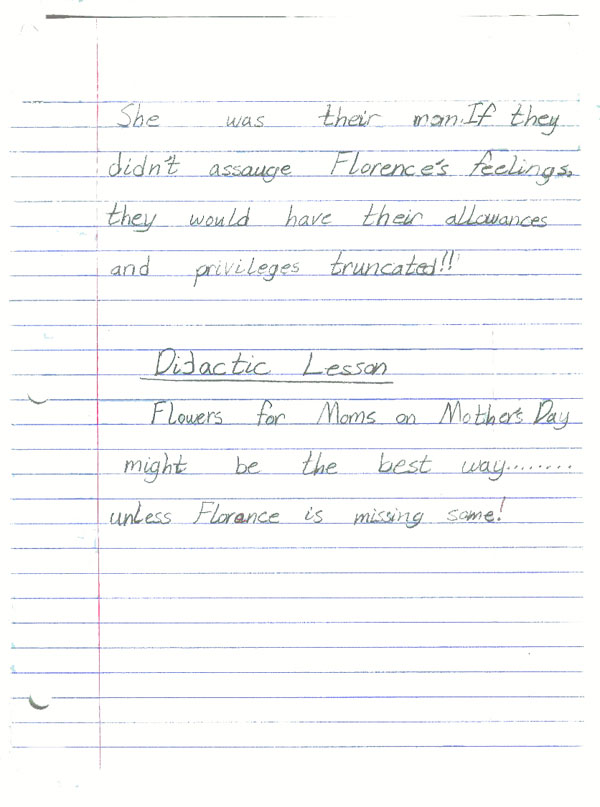 She was their mom. If they
didn't assauge Florence's feelings,
they would have their allowances
and privileges truncated!!
Didactic Lesson
Flowers for Moms on Mother's Day
might be the best way........
unless Florence is missing some!